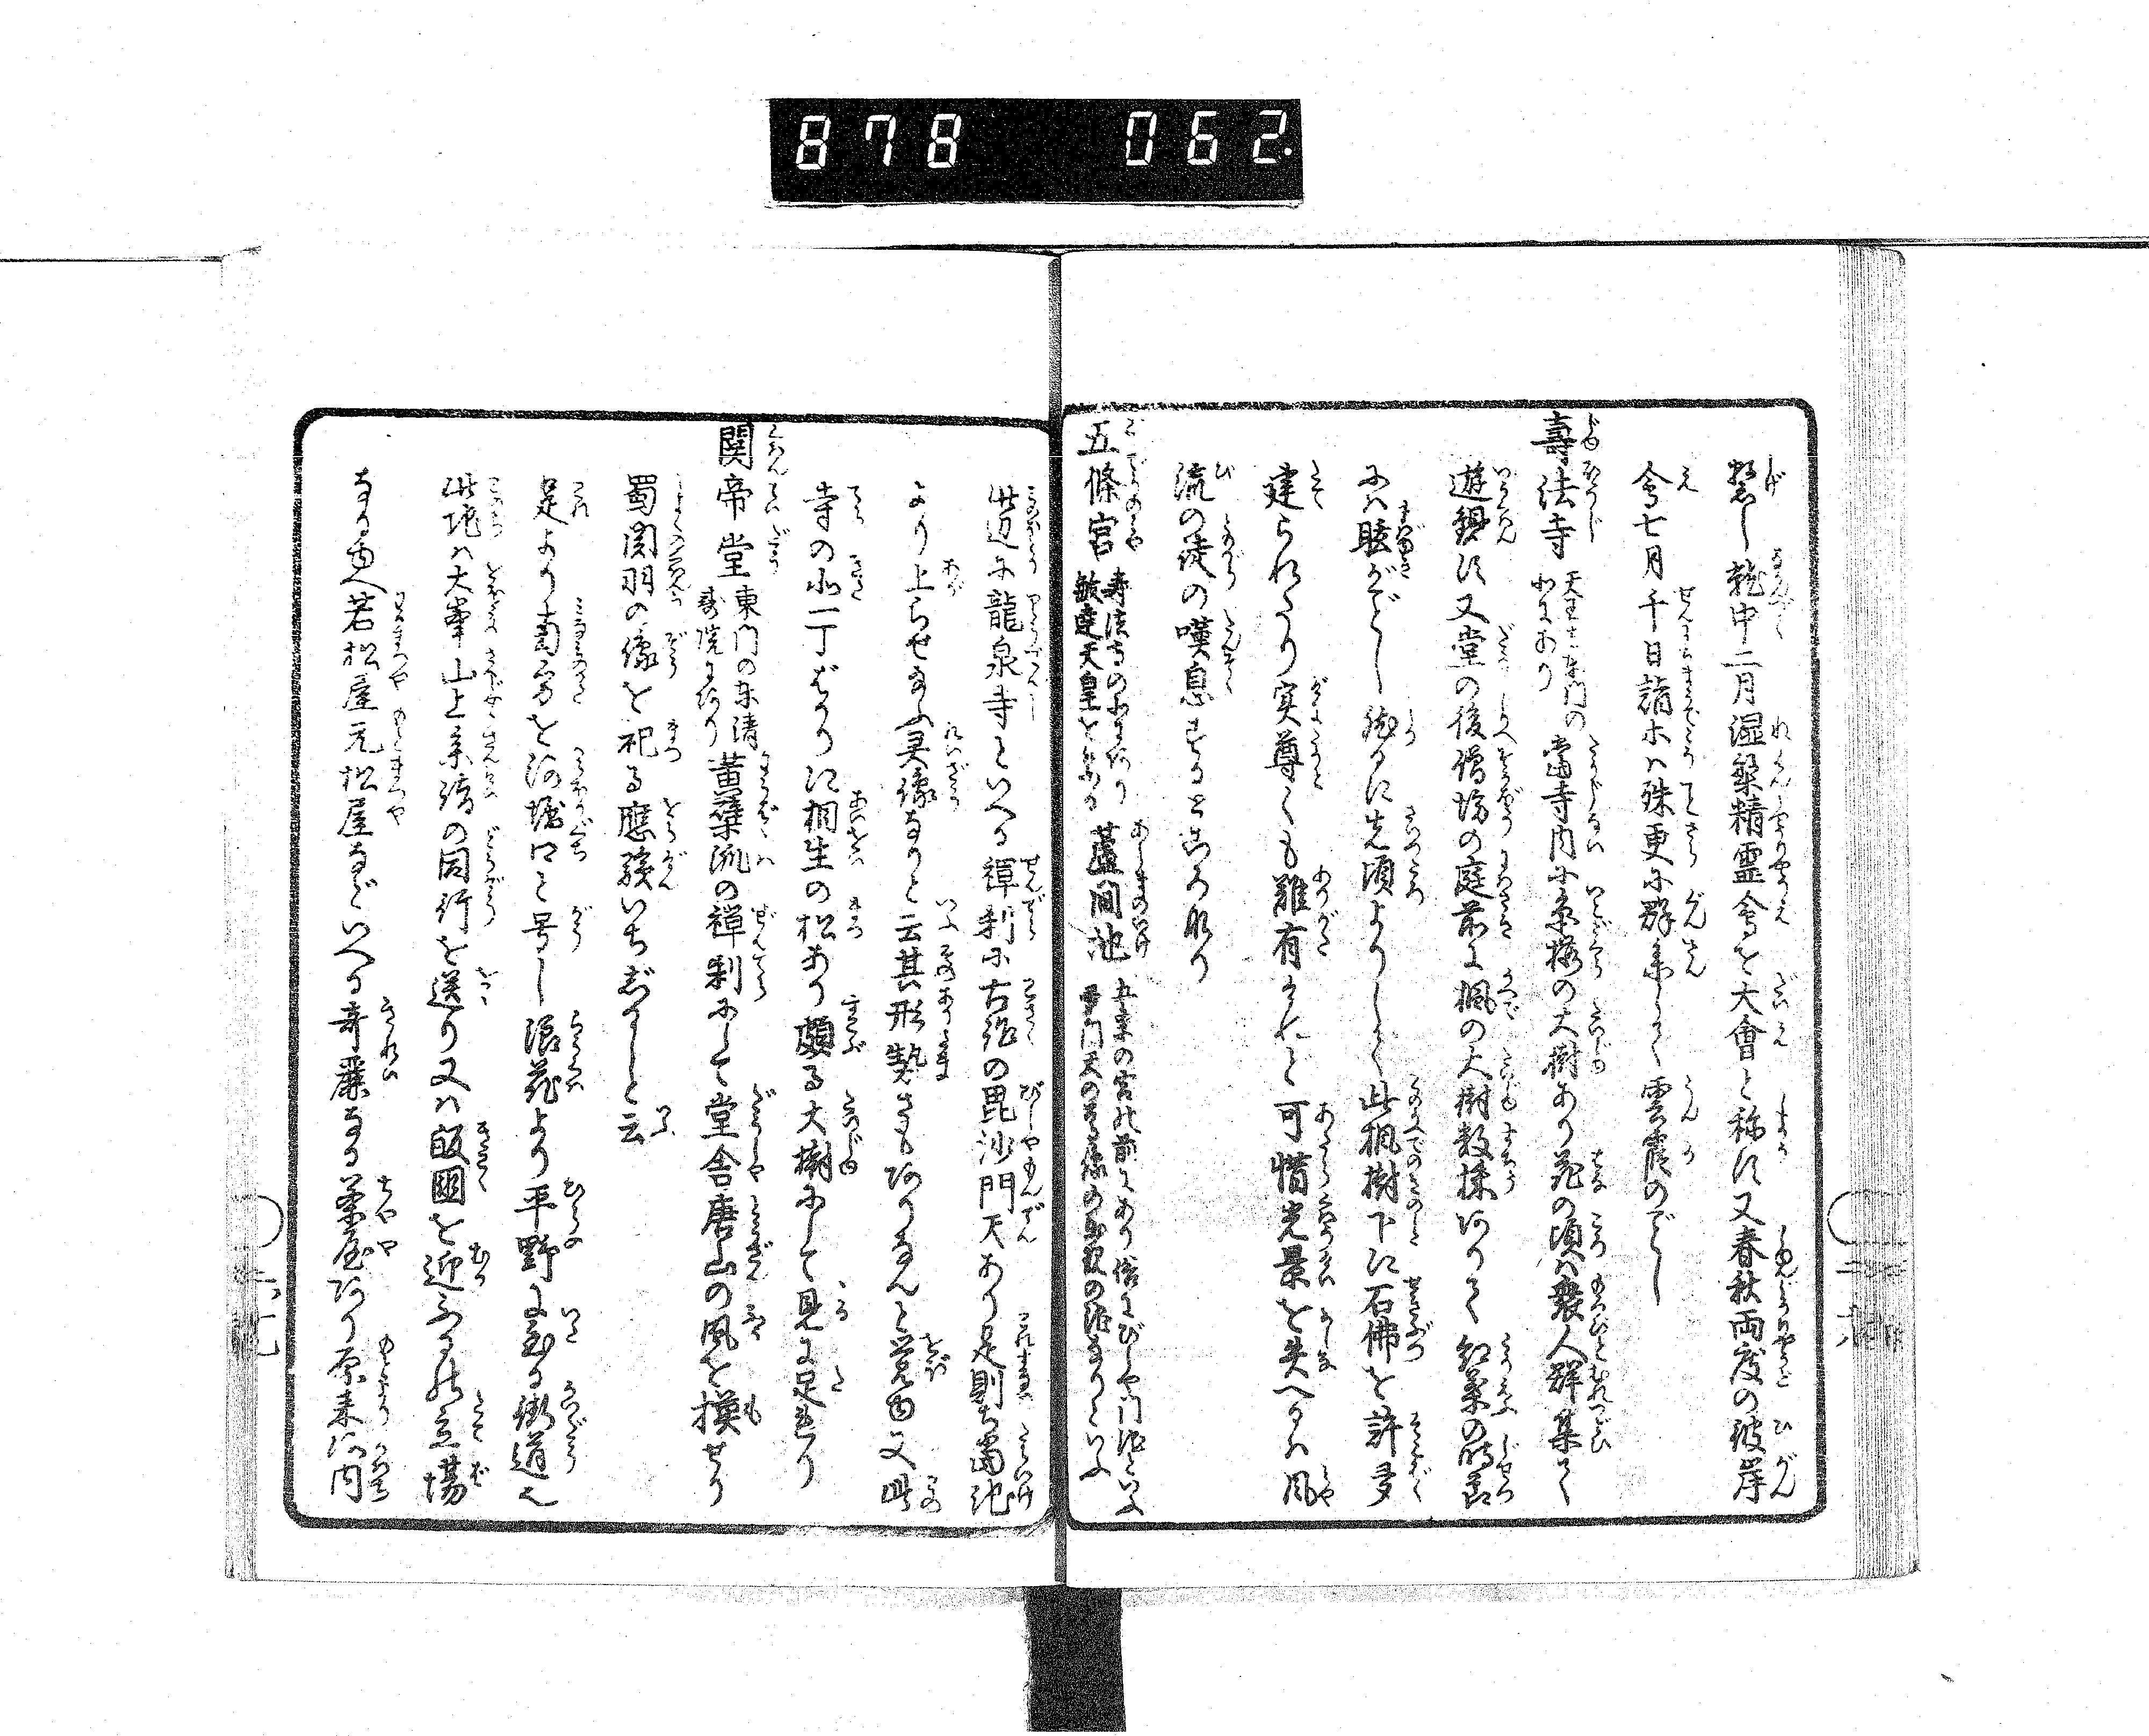 878 062
繁し就中二月涅槃精霊会を大會と称す又春秋両度の彼岸
会七月千日詣ホハ殊更に群集して雲霞のごとし
壽法寺 天王寺東門の北にあり 當寺内に糸桜の大樹あり花の頃ハ衆人群集して
遊観す又堂の後僧坊の庭前に楓の大樹数株ありて紅葉の時節
にハ眩がごとし然るに先頃よりして此楓樹下に石佛を許多
建られたり実尊くも難有けれど可惜光景を失へるハ風
流の徒の嘆息する所なり
五條宮 寿法寺の北にあり敏達天皇をまつる 蘆間池 五条の宮の前にあり俗にびしや門池といふ
此辺に龍泉寺といへる禅刹に古作の毘沙門天あり是則ち當池
より上らせ給ふ霊像なりと云其形勢さもありなんと覚ゆ又此
寺の北一丁ばかりに相生の松あり頗る大樹にして見るに足れり
関帝堂 東門の東清寿院にあり 黄檗派の禅刹にして堂舎唐山の風を摸せり
蜀関羽の像を祀る應験いちじるしと云
是より南方を河堀口と号し浪花より平野に至る街道也
此地ハ大峯山上参詣の同行を送り又ハ皈国を迎ふるの立場
なる由へ若松屋元松屋などいへる奇麗なる茶屋あり原来河内